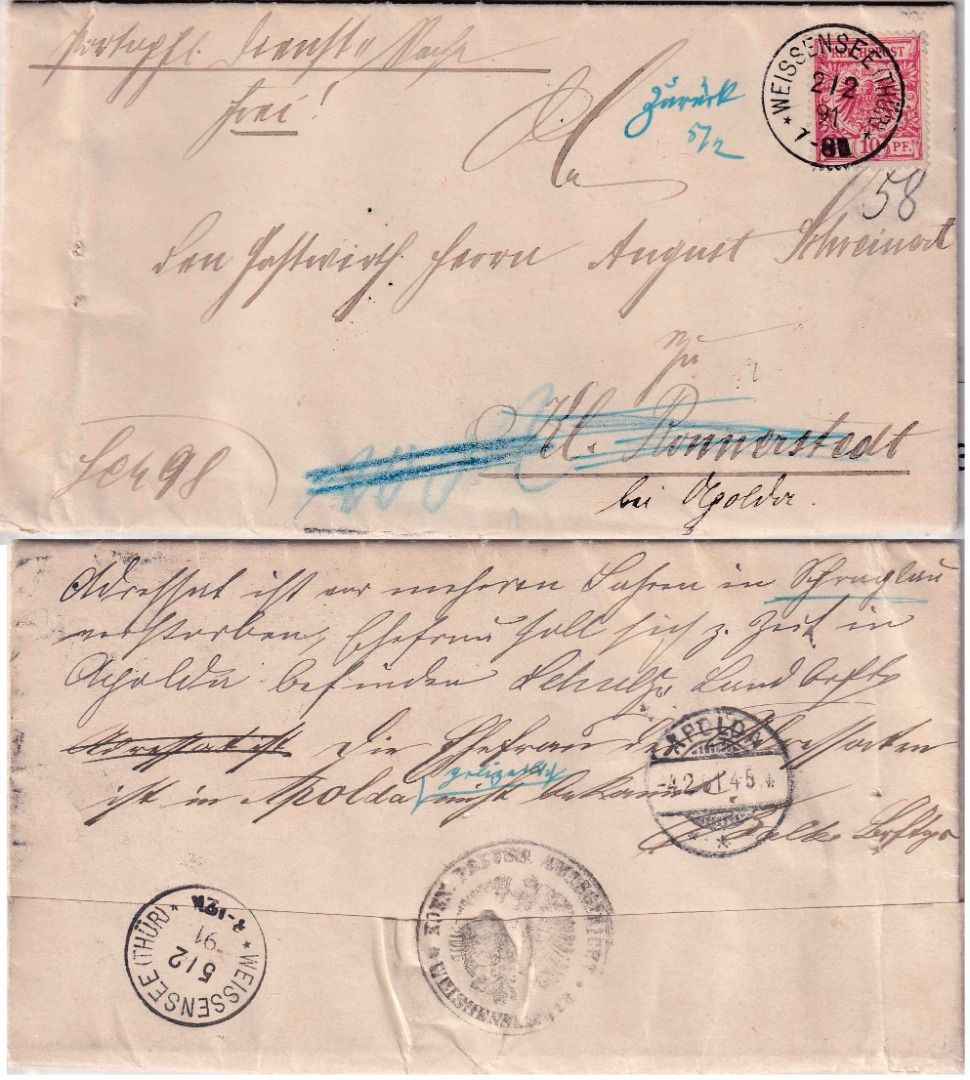 Portopfl. Dienstsache
frei!
Zurück
5/2
WEISSENSEE (THÜR)
2/2
91
7-8N
REICHSPOST
10 PF.
58
An
den Gastwirth Herrn August Schreinert
zu
Kl. Romerstedt
bei Apolda.
98
Adressat ist vor mehren Jahren in
verstorben, Ehefrau soll sich z. Zeit in
Apolda befinden Landbrftr
Adressat ist Die Ehefrau des Adressaten
ist in Apolda polizeilich nicht bekannt
Brftgr
APOLDA
4.2.91 4-5 N.
KOEN. PREUSS. AMTSGERICHT
WEISSENSEE
WEISSENSEE (THÜR)
5/2
91